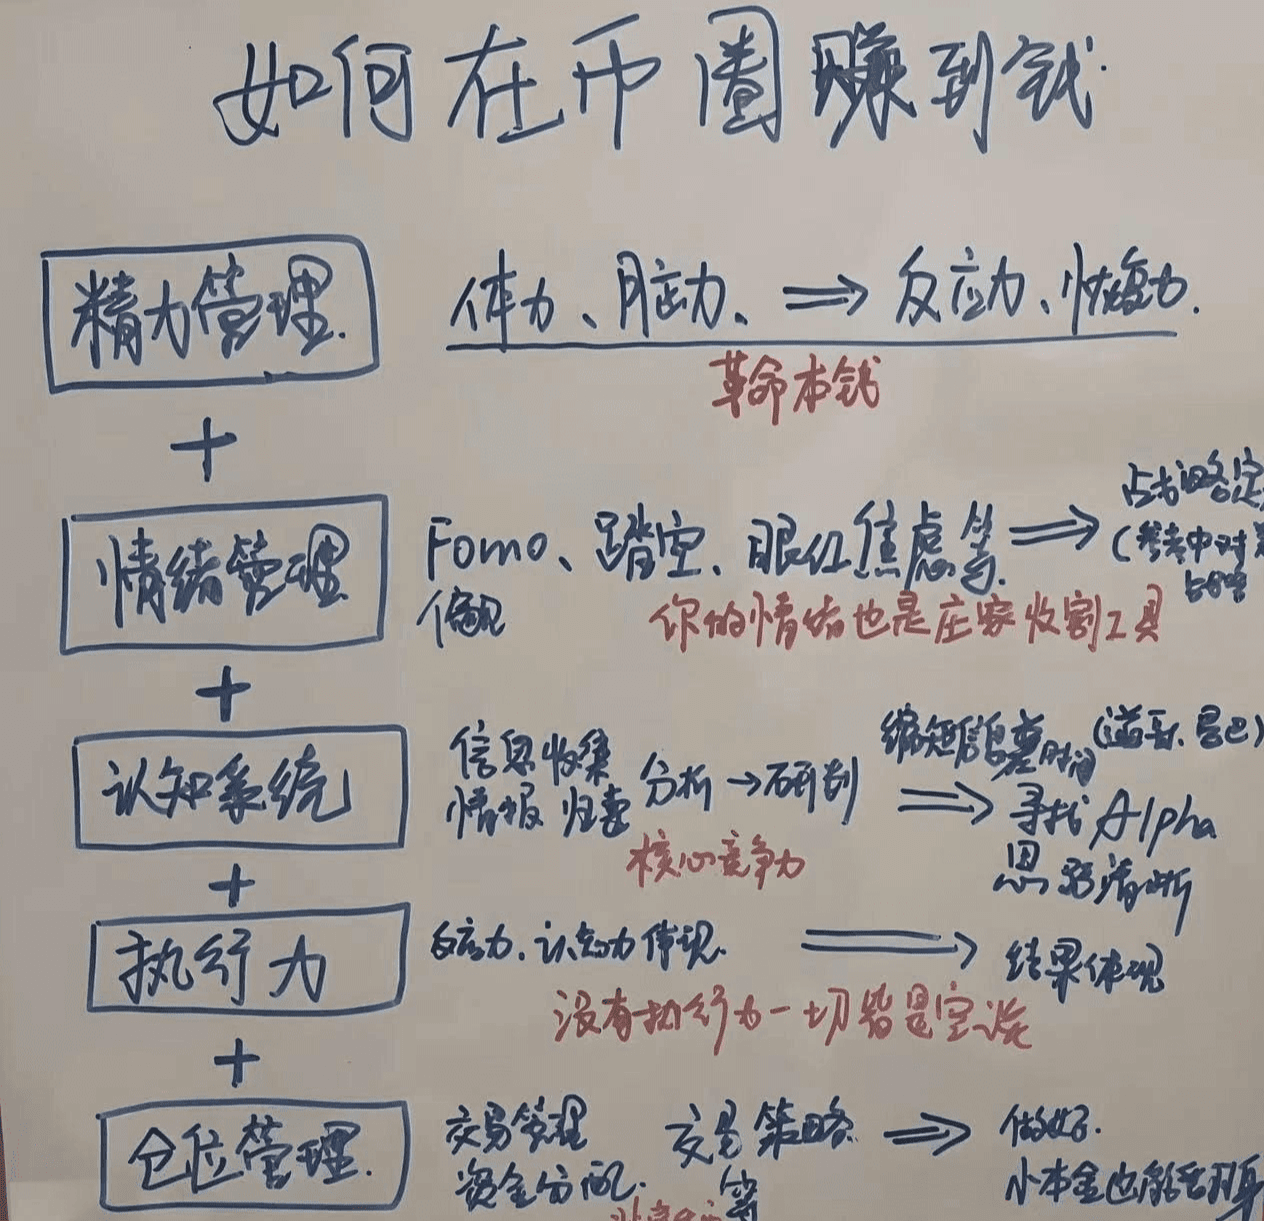 如何在币圈赚到钱
精力管理
体力、脑力、⇒ 反应力、恢复力.
革命本钱
+
情绪管理
Fomo、踏空、眼红焦虑等 ⇒
偏见
你的情绪也是庄家收割工具
+
认知系统
信息收集
情报归类 分析→研判 ⇒
缩短信息差时间
寻找Alpha
思路清晰
核心竞争力
+
执行力
反应力、认知力体现. ⇒ 结果体现
没有执行力一切皆是空谈
+
仓位管理.
交易管理 交易策略 ⇒ 做好.
资金分配. 等
小本金也能翻身